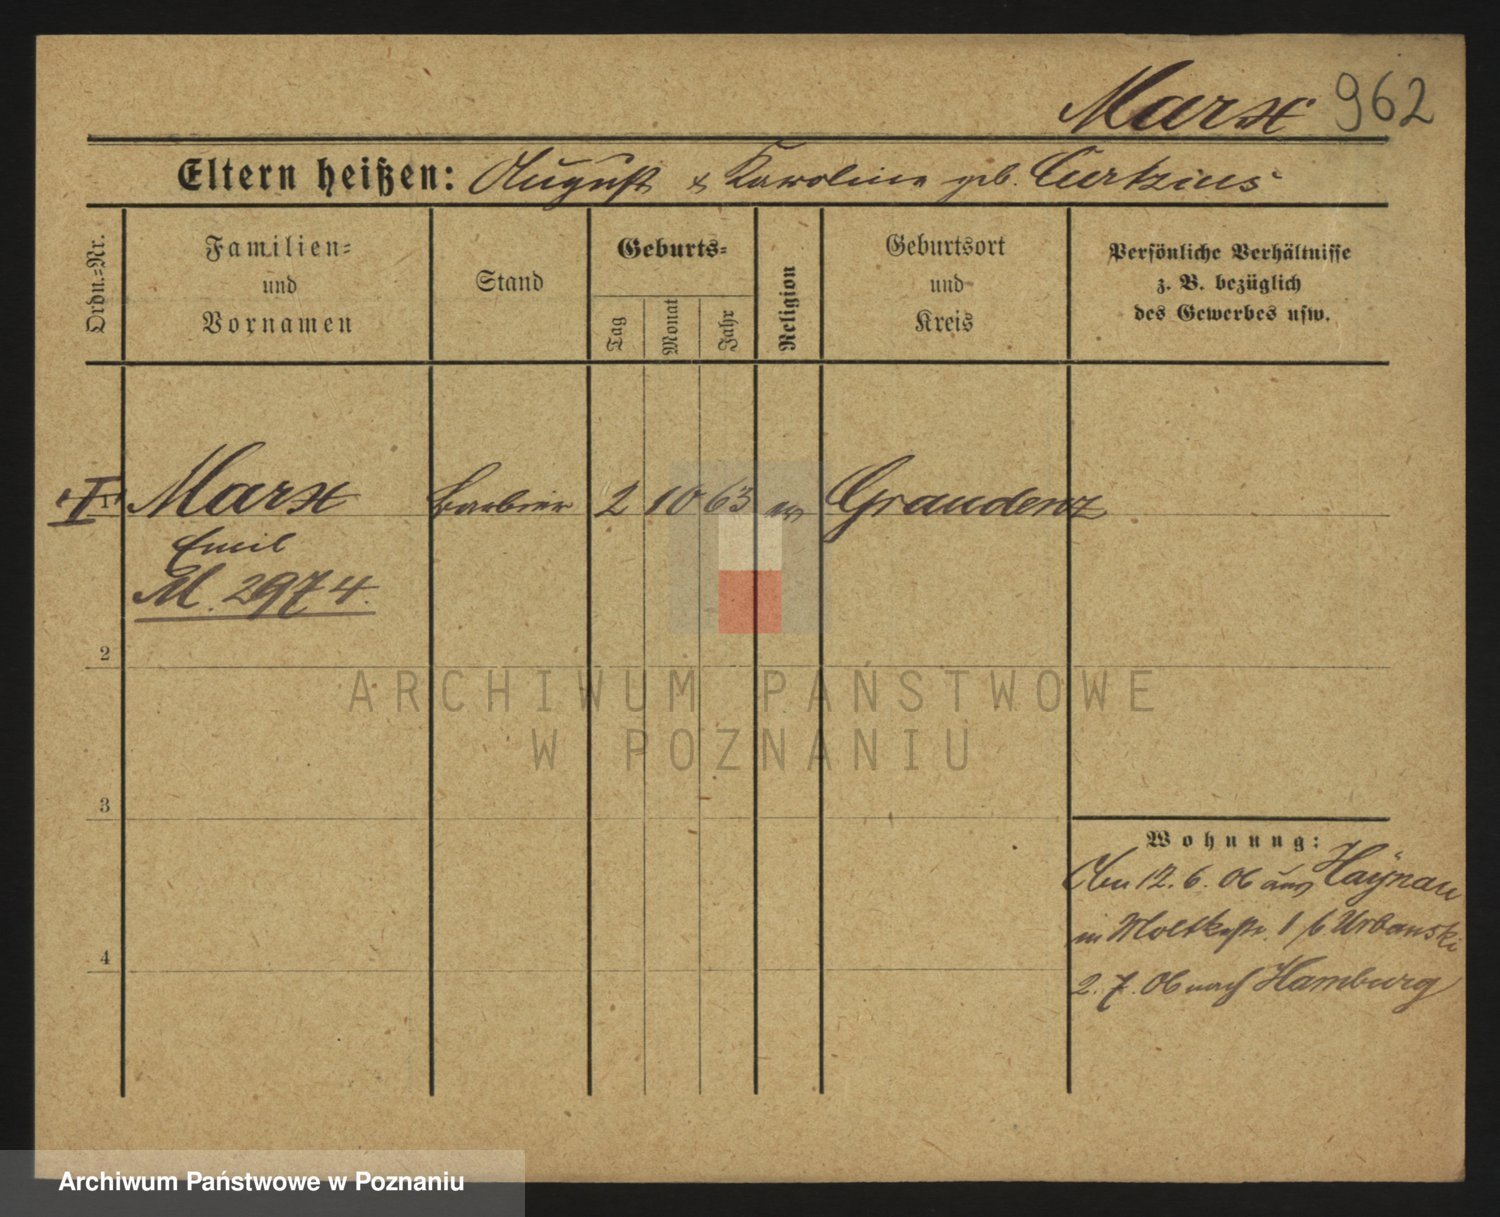 Marx 962
Eltern heißen: August & Karoline geb. Curtzius
Ordn.-Nr.
Familien-
und
Vornamen
Stand
Geburts-
Tag
Monat
Jahr
Religion
Geburtsort
und
Kreis
Persönliche Verhältnisse
z. B. bezüglich
des Gewerbes usw.
I Marx Barbier 2 10 63 ev Graudenz
Emil
M. 2974.
2
3
4
Wohnung:
12. 6. 06 aus Haÿnau
in Moltkestr. 1 b Urbanski
2. 7. 06 nach Hamburg
ARCHIWUM PAŃSTWOWE
W POZNANIU
Archiwum Państwowe w Poznaniu